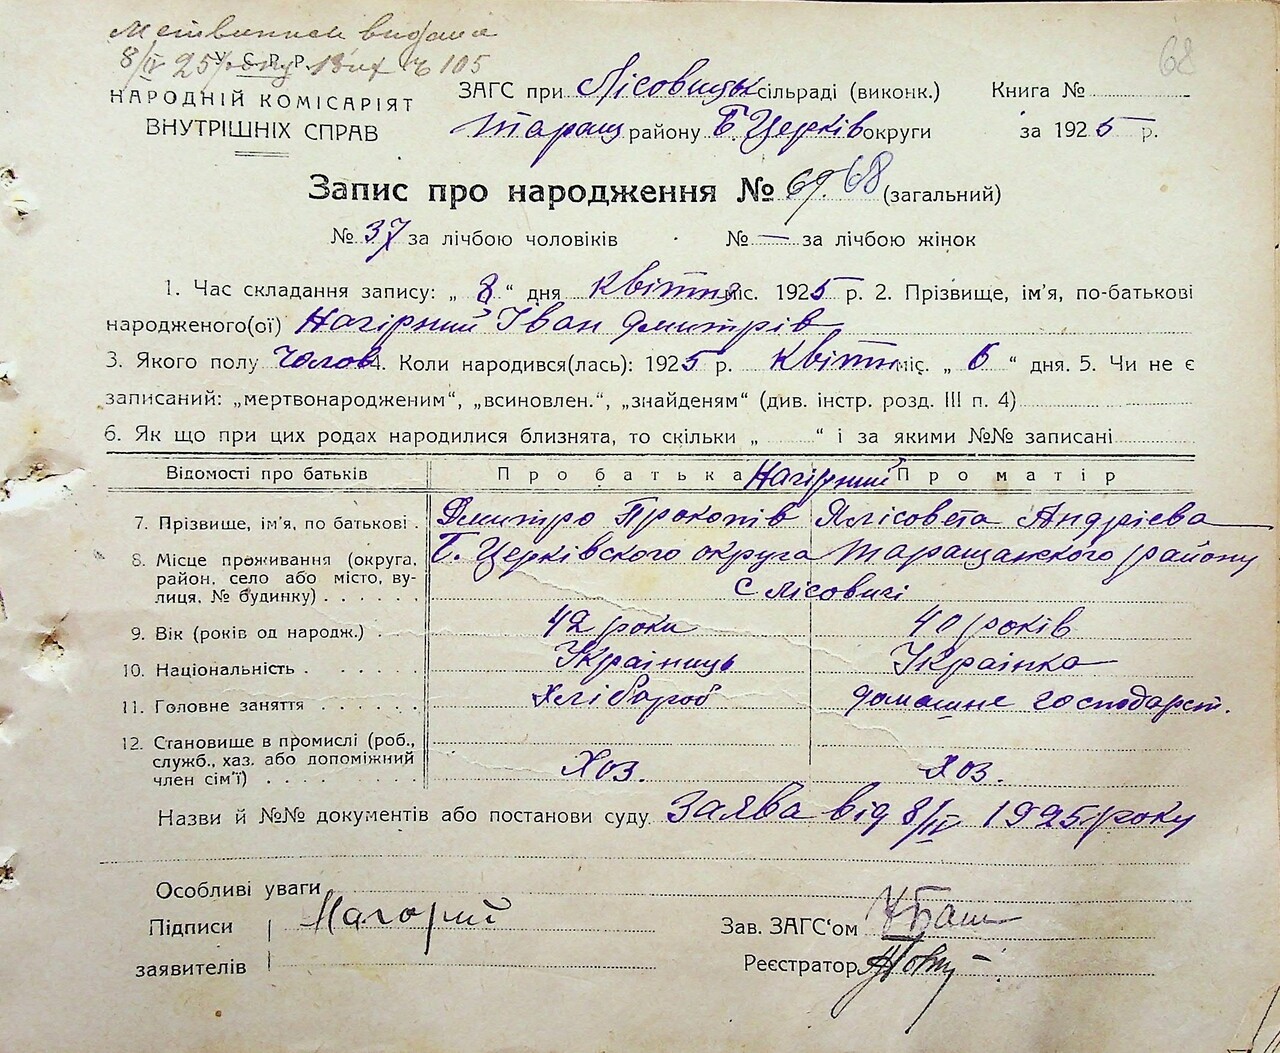 видана
8/IV 25 року № 105
У.С.Р.Р.
68
НАРОДНІЙ КОМІСАРІЯТ
ВНУТРІШНІХ СПРАВ
ЗАГС при Лісовицьк сільраді (виконк.) Книга №
Таращ району Б Церків округи за 1925 р.
Запис про народження № 69. 68 (загальний)
№ 37 за лічбою чоловіків № — за лічбою жінок
1. Час складання запису: „ 8 “ дня Квітня міс. 1925 р. 2. Прізвище, ім'я, по-батькові
народженого(ої) Нагірний Іван Дмитрів
3. Якого полу Чолов 4. Коли народився(лась): 1925 р. Квітн міс. „ 6 “ дня. 5. Чи не є
записаний: „мертвонародженим“, „всиновлен.“, „знайденям“ (див. інстр. розд. III п. 4)
6. Як що при цих родах народилися близнята, то скільки „ “ і за якими №№ записані
Відомості про батьків Про батька Нагірний Про матір
7. Прізвище, ім'я, по батькові Дмитро Прокопів Ялісовета Андрієва
8. Місце проживання (округа, район, село або місто, вулиця, № будинку) Б. Церківского округа Таращанского району
с Лісовичі
9. Вік (років од народж.) 42 роки 40 років
10. Національність Украінець Украінка
11. Головне заняття Хлібороб домашне господарст.
12. Становище в промислі (роб., служб., хаз. або допоміжний член сім'ї) Хоз. Хоз.
Назви й №№ документів або постанови суду Заява від 8/IV 1925 року
Особливі уваги
Підписи Нагорий Зав. ЗАГС'ом
заявителів Реєстратор